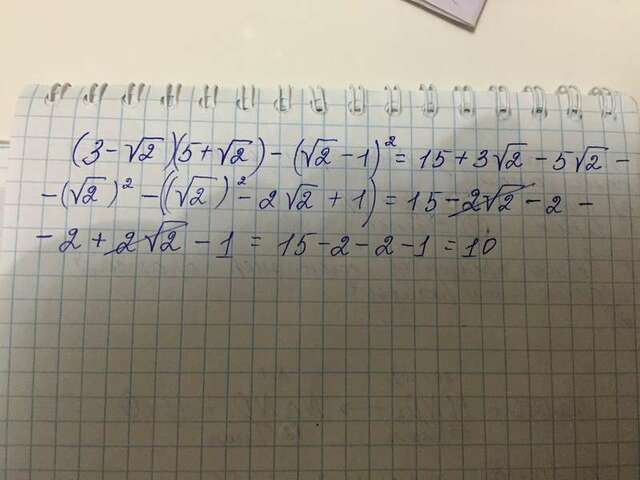 (3-√2)(5+√2)-(√2-1)²=15+3√2-5√2-
-(√2)²-((√2)²-2√2+1)=15-2√2-2-
-2+2√2-1=15-2-2-1=10